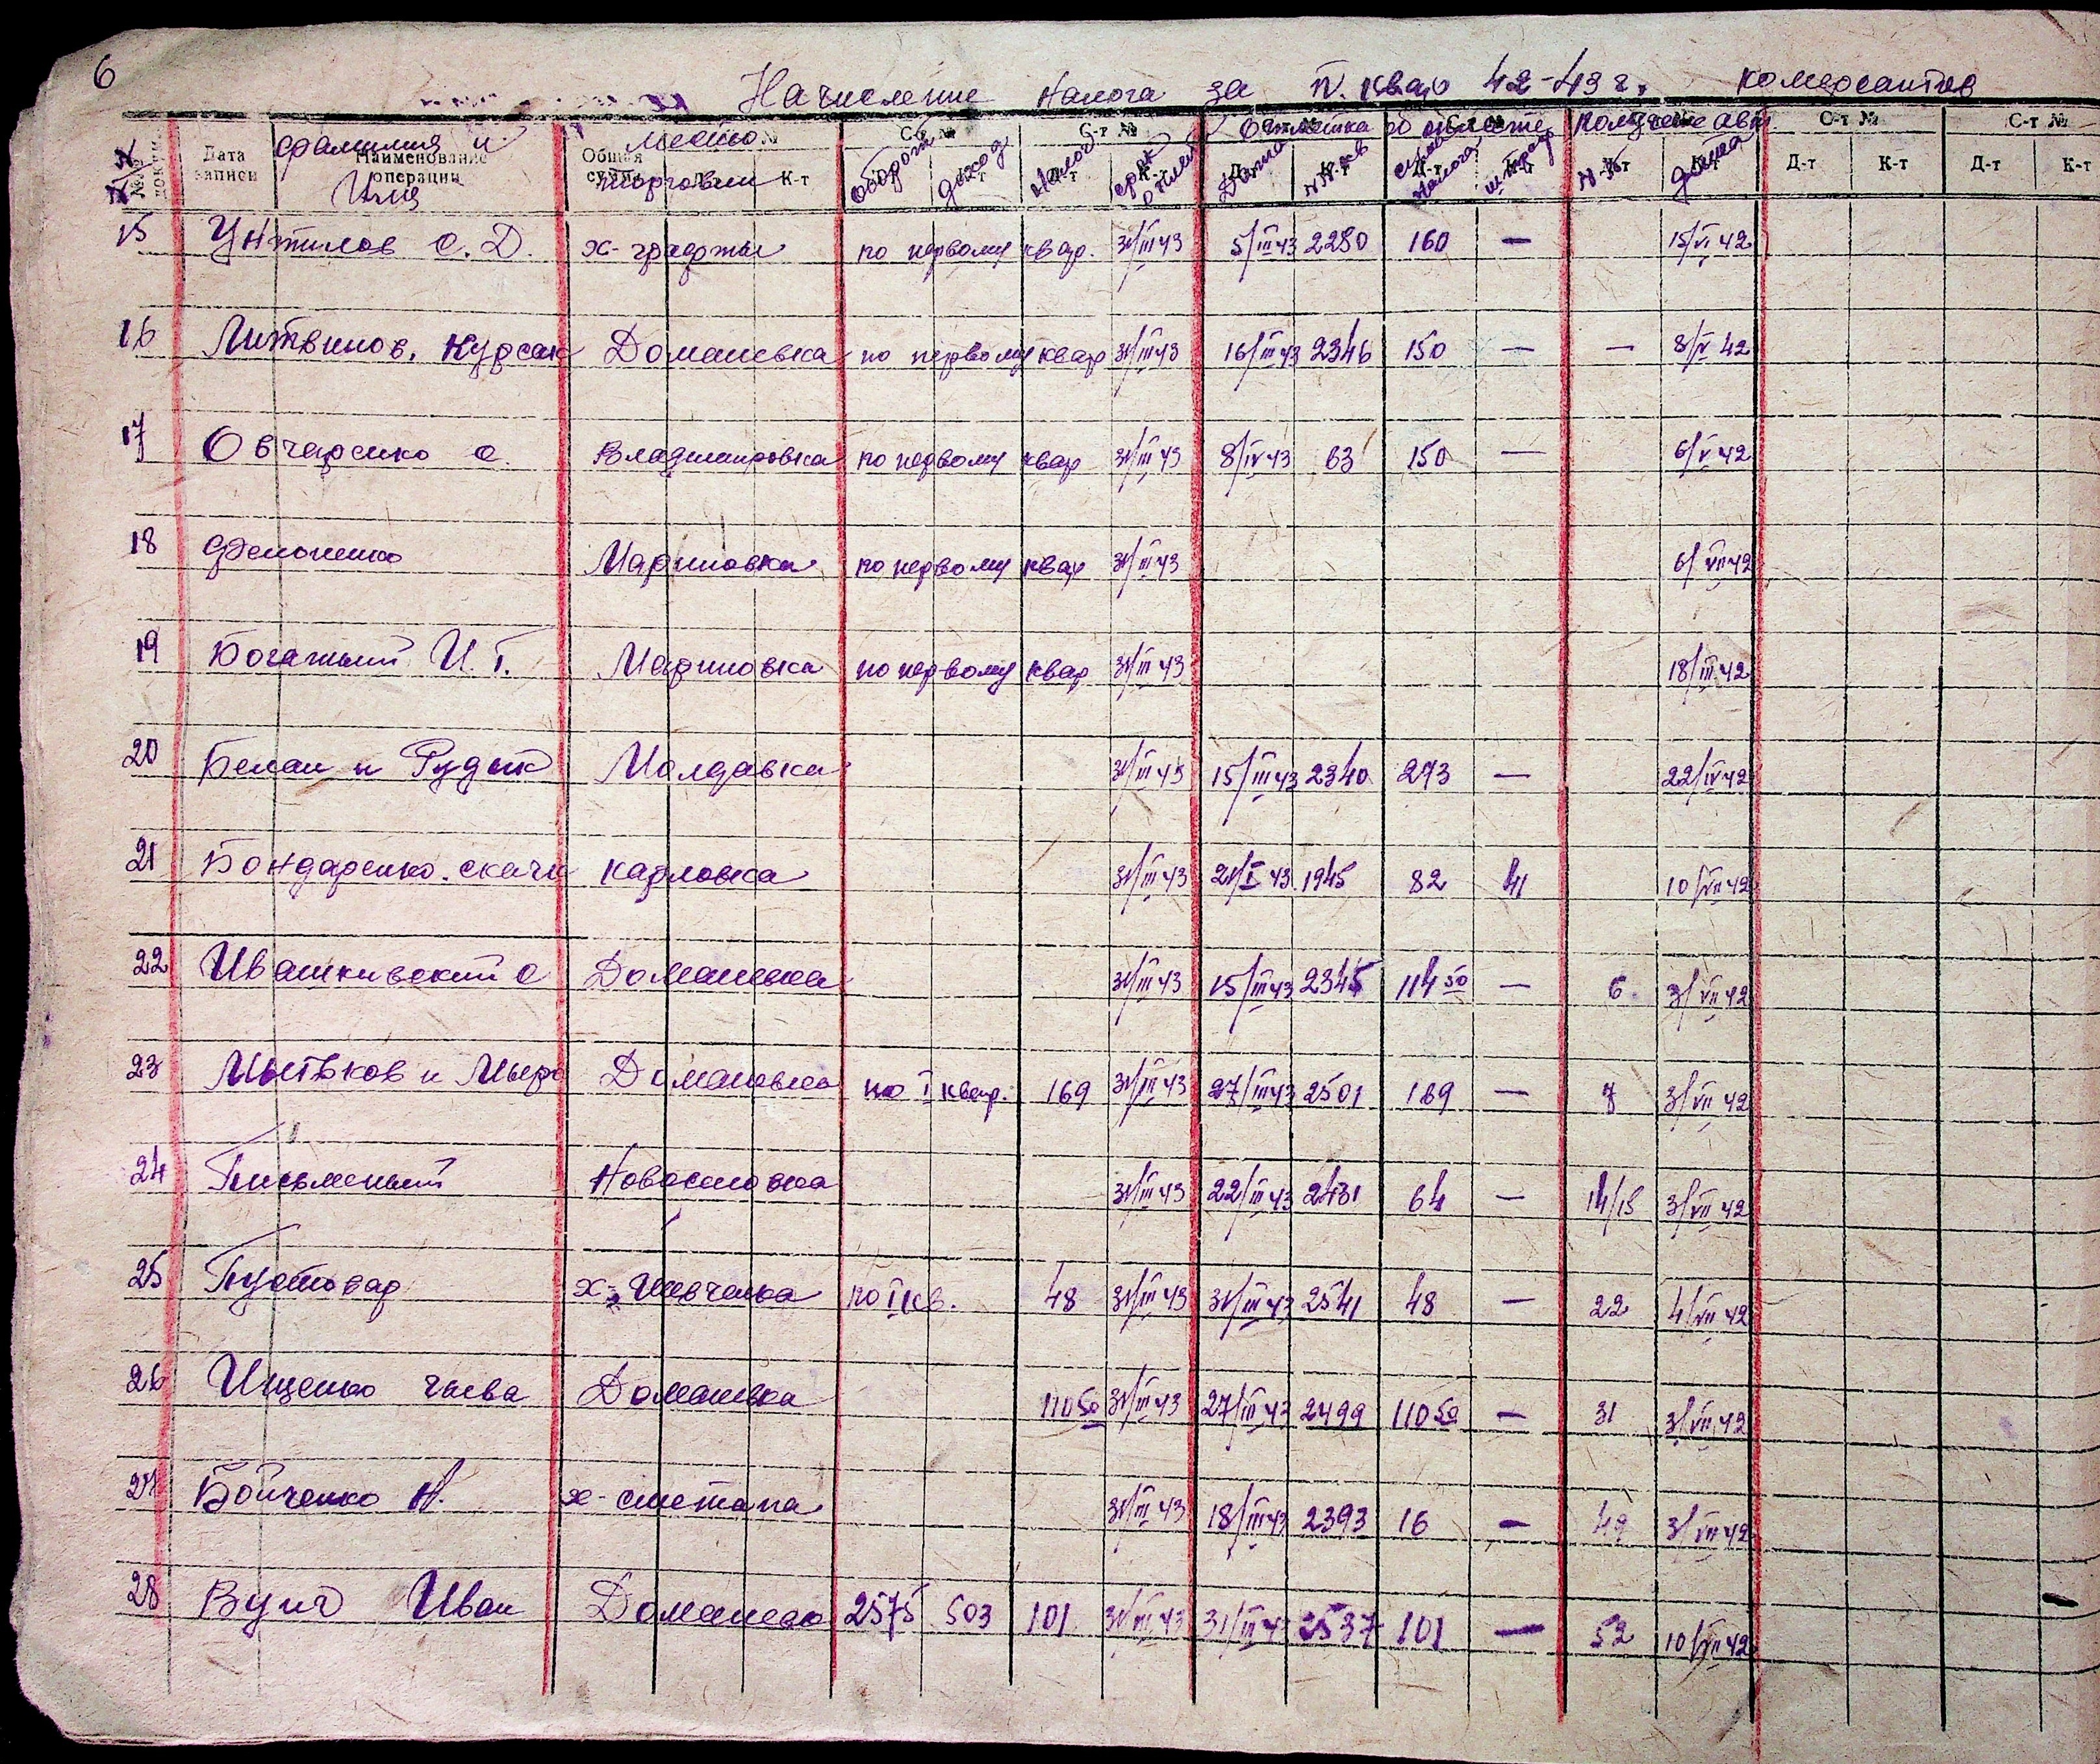 6
Начисление налога за IV. квар 42-43 г. комерсантов
№№ Дата записи фамилия и Имя Наименование операции Общая сумма место торговли К-т С-т № оборот доход С-т № налог срок К-т Отметка об оплате Дата №№ кв сумма налога штраф Получение авт №№ дата С-т № Д-т К-т С-т № Д-т К-т
15 Унтилов С. Д. х- по первому квар. 31/III 43 5/III 43 2280 160 — 15/VI 42
16 Литвинов, Курсак Доманевка по первому квар 31/III 43 16/III 43 2346 150 — — 8/V 42
17 Овчаренко С. Владимировка по первому квар 31/III 43 8/IV 43 63 150 — 6/V 42
18 Мариновка по первому квар 31/III 43 6/VII 42
19 Богатый И. Г. Мариновка по первому квар 31/III 43 18/III 42
20 Белан и Рудык Молдавка 31/III 43 15/III 43 2340 273 — 22/IV 42
21 Бондаренко. Карловка 31/III 43 21/I 43 1945 82 41 10/VII 42
22 Ивашкивский С Доманевка 31/III 43 15/III 43 2345 114 50 — 6 3/VII 42
23 Мытьков и Доманевка по I квар. 169 31/III 43 27/III 43 2501 169 — 7 3/VII 42
24 Письменный Новоселовка 31/III 43 22/III 43 2431 64 — 14/15 3/VII 42
25 Пустовар х- Шевченка по I кв. 48 31/III 43 31/III 43 2541 48 — 22 4/VII 42
26 Ищенко Доманевка 110 50 31/III 43 27/III 43 2499 110 50 — 31 3/VII 42
27 Бойченко Н. х- сметана 31/III 43 18/III 43 2393 16 — 49 3/VII 42
28 Иван Доманевка 2575 503 101 31/III 43 31/III 43 2537 101 — 52 10/VII 42